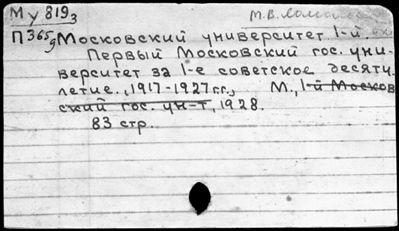 Му 819₃
М.В.
П365g Московский университет 1-й.
Первый Московский гос. уни-
верситет за 1-е советское десяти-
летие., 1917-1927 г.г., М., 1-й Москов
ский гос. ун-т, 1928.
83 стр.